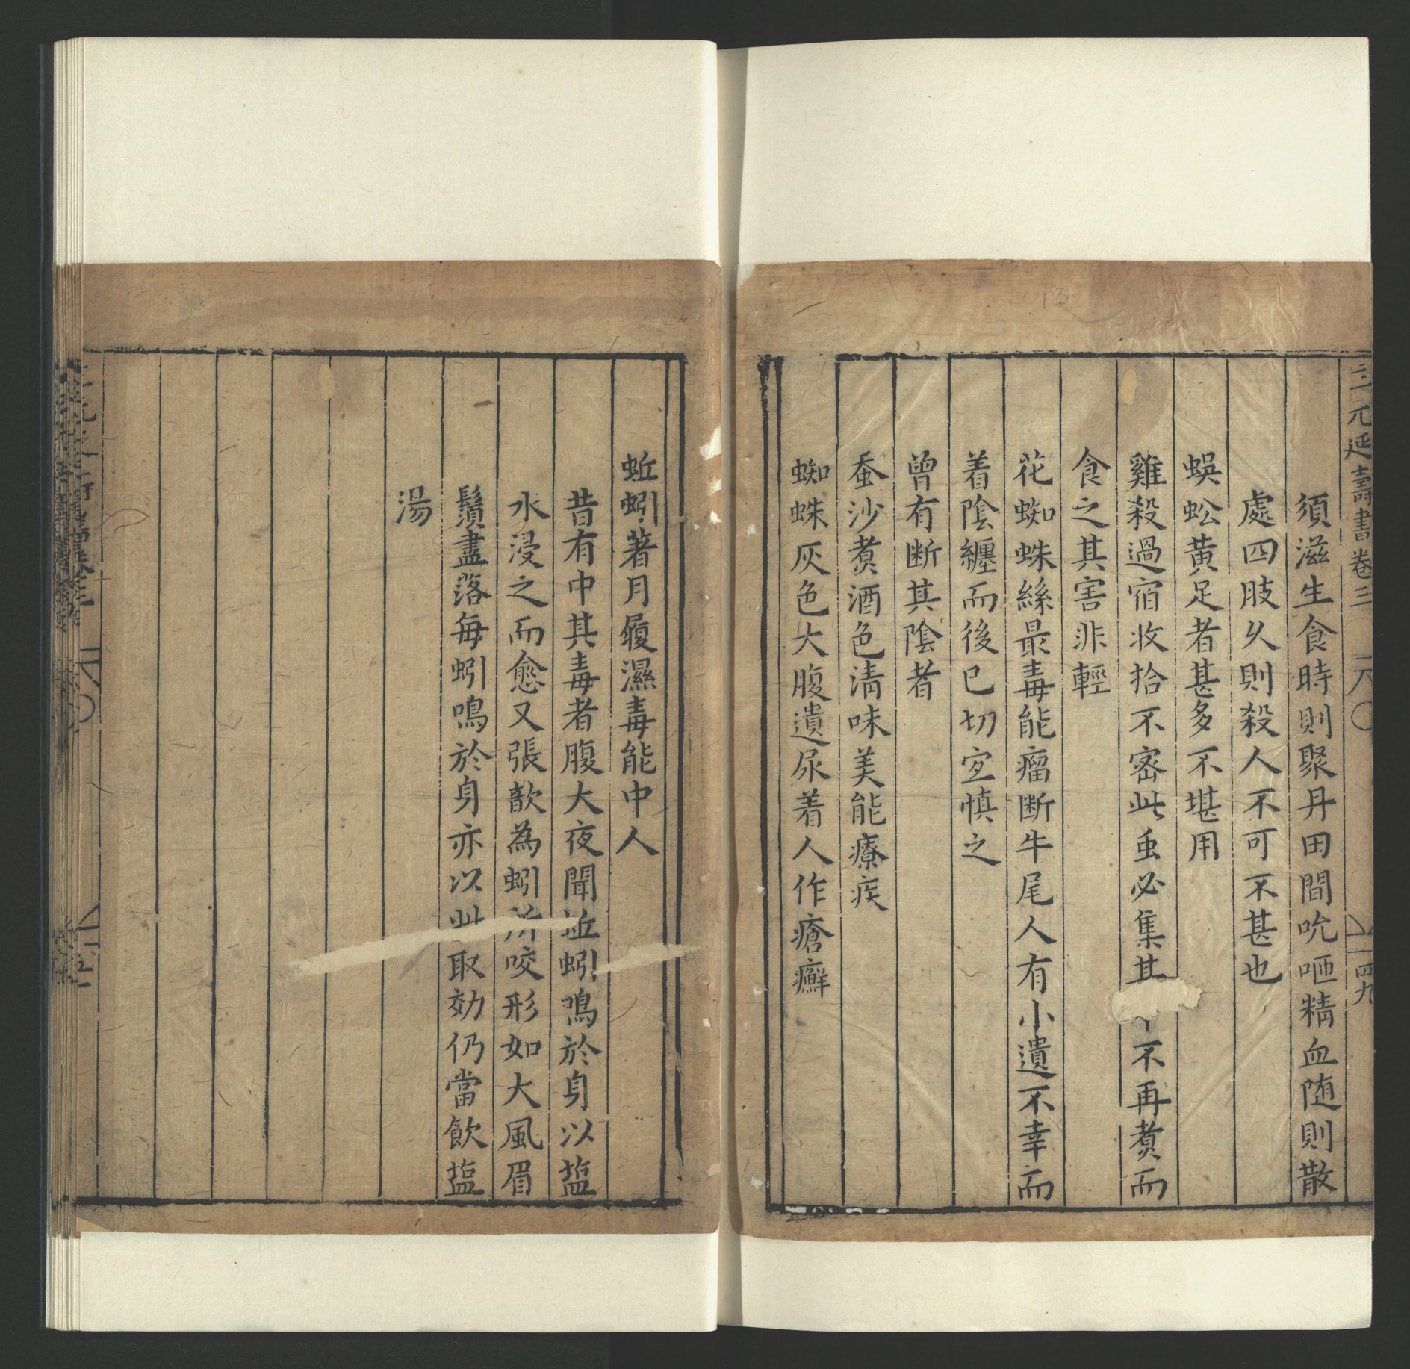 三元延壽書卷三
六〇
四九
須滋生食時則聚丹田間吮咂精血随則散
處四肢乆則殺人不可不甚也
蜈蚣黄足者甚多不堪用
雞殺過宿收拾不密此虫必集其 不再煑而
食之其害非輕
花蜘蛛絲最毒能瘤断牛尾人有小遺不幸而
着陰纏而後已切宜慎之
曾有断其陰者
蚕沙煑酒色清味美能療疾
蜘蛛灰色大腹遺尿着人作瘡癬
蚯蚓著月履濕毒能中人
昔有中其毒者腹大夜聞蚯蚓鳴於身以塩
水浸之而愈又張歆為蚓所咬形如大風眉
鬚盡落每蚓鳴於身亦以此取効仍當飲塩
湯